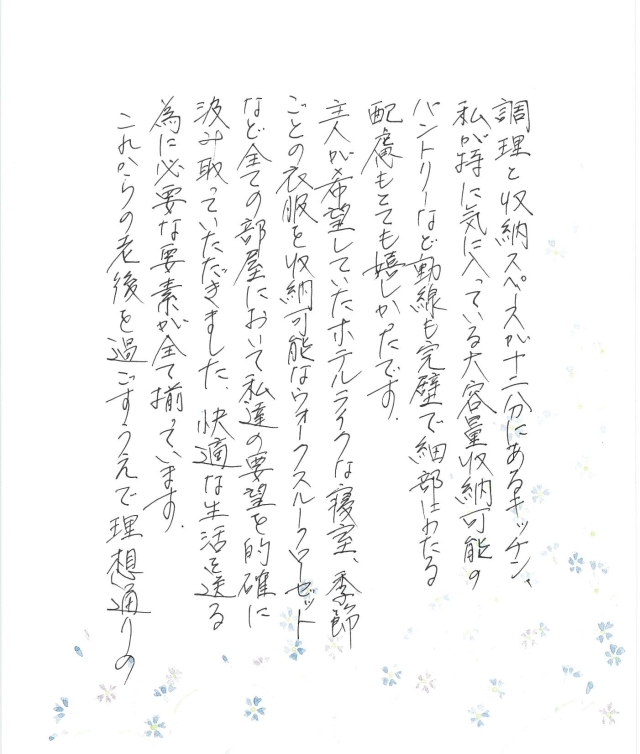 調理と収納スペースが十二分にあるキッチン、
私が特に気に入っている大容量収納可能の
パントリーなど動線も完璧で細部にわたる
配慮もとても嬉しかったです。
主人が希望していたホテルライクな寝室、季節
ごとの衣服を収納可能なウォークスルークローゼット
など全ての部屋において私達の要望を的確に
汲み取っていただきました。快適な生活を送る
為に必要な要素が全て揃っています。
これからの老後を過ごすうえで理想通りの